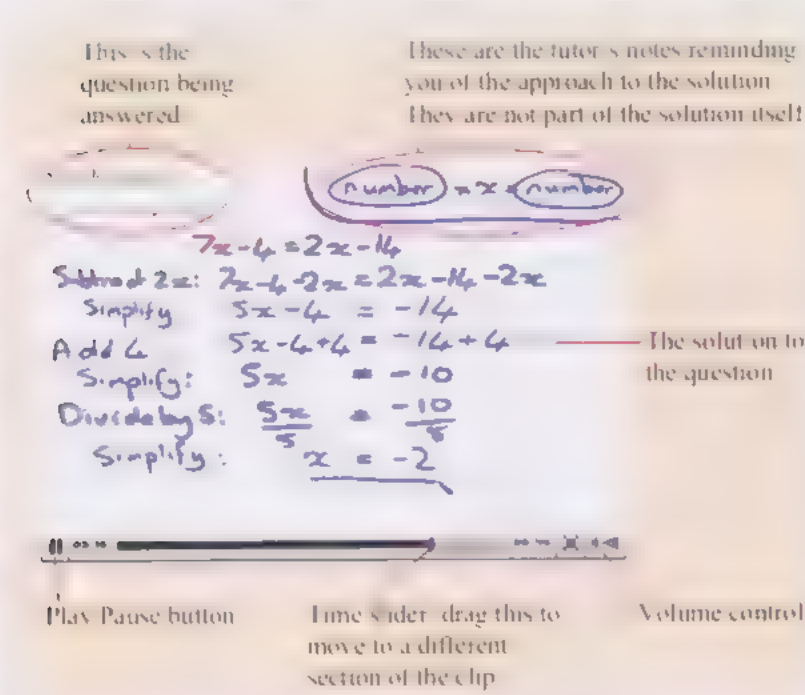 This is the
question being
answered
These are the tutor's notes reminding
you of the approach to the solution
They are not part of the solution itself
number = x = number
7x-4 = 2x-14
Subtract 2x: 7x-4-2x = 2x-14-2x
Simplify 5x-4 = -14
Add 4 5x-4+4 = -14+4
Simplify: 5x = -10
Divide by 5: 5x/5 = -10/5
Simplify: x = -2
The solution to
the question
Play Pause button
Time slider drag this to
move to a different
section of the clip
Volume control